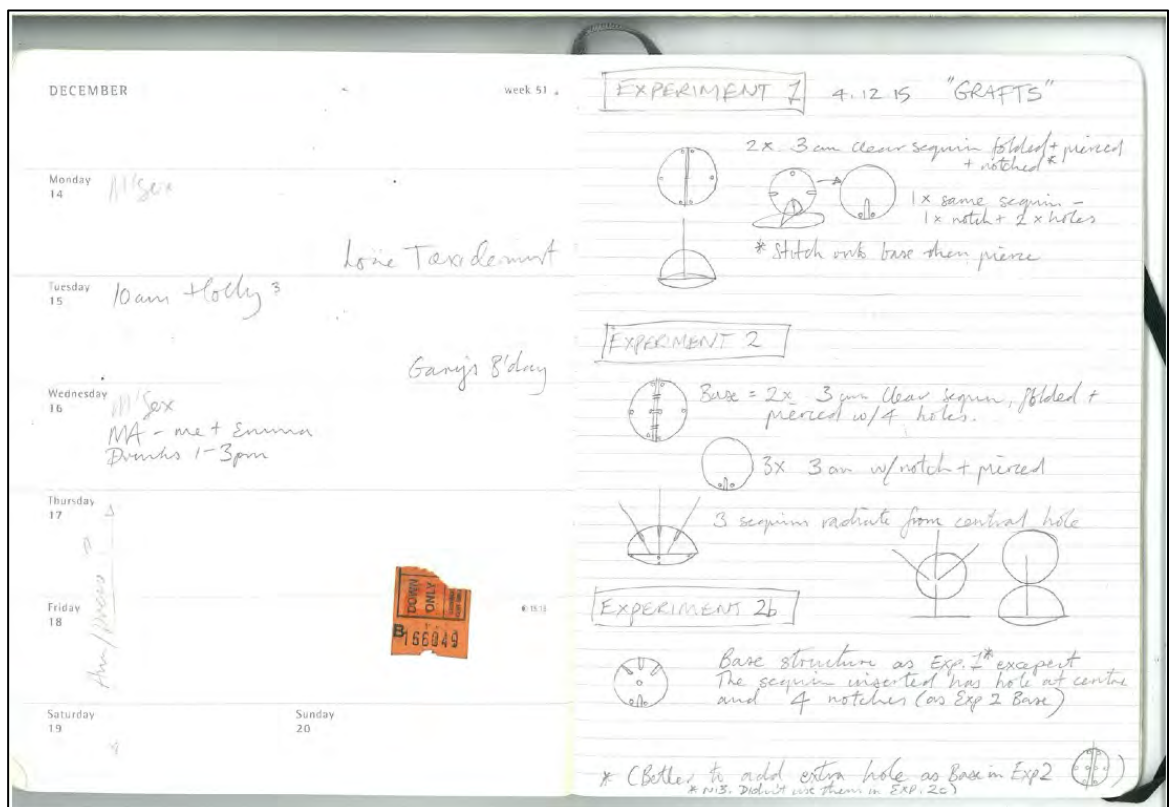 DECEMBER
week 51
Monday
14
M'Sex
Tuesday
15
10am Holly
Gary's B'day
Wednesday
16
M'Sex
MA - me + Emma
Drinks 1-3pm
Thursday
17
Friday
18
DOWN
ONLY
B166049
Saturday
19
Sunday
20
EXPERIMENT 1 4.12.15 "GRAFTS"
2x 3cm clear sequin folded + pierced
+ notched*
1x same sequin -
1x notch + 2x holes
* Stitch onto base then pierce
EXPERIMENT 2
Base = 2x 3cm clear sequin, folded +
pierced w/4 holes.
3x 3cm w/notch + pierced
3 sequins radiate from central hole
EXPERIMENT 2b
Base structure as Exp. 1*
The sequin inserted has hole at centre
and 4 notches (as Exp 2 Base)
* (Better to add extra hole as Base in Exp2 )
* N.B. Didn't use them in EXP. 2c)